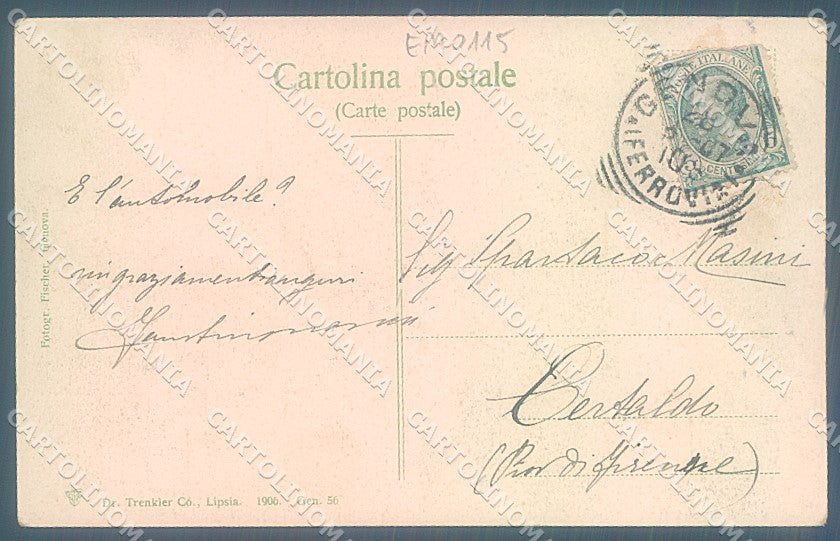 Cartolina postale
(Carte postale)
E l'automobile?
ringraziamenti auguri
Sig Spartaco Masini
Certaldo
(Prov di Firenze)
POSTE ITALIANE
CENT
GENOVA
28
07
10S
(FERROVIA)
Fotogr. Fischer, Genova.
Dr. Trenkler Co., Lipsia. 1906. Gen. 56
CARTOLINOMANIA